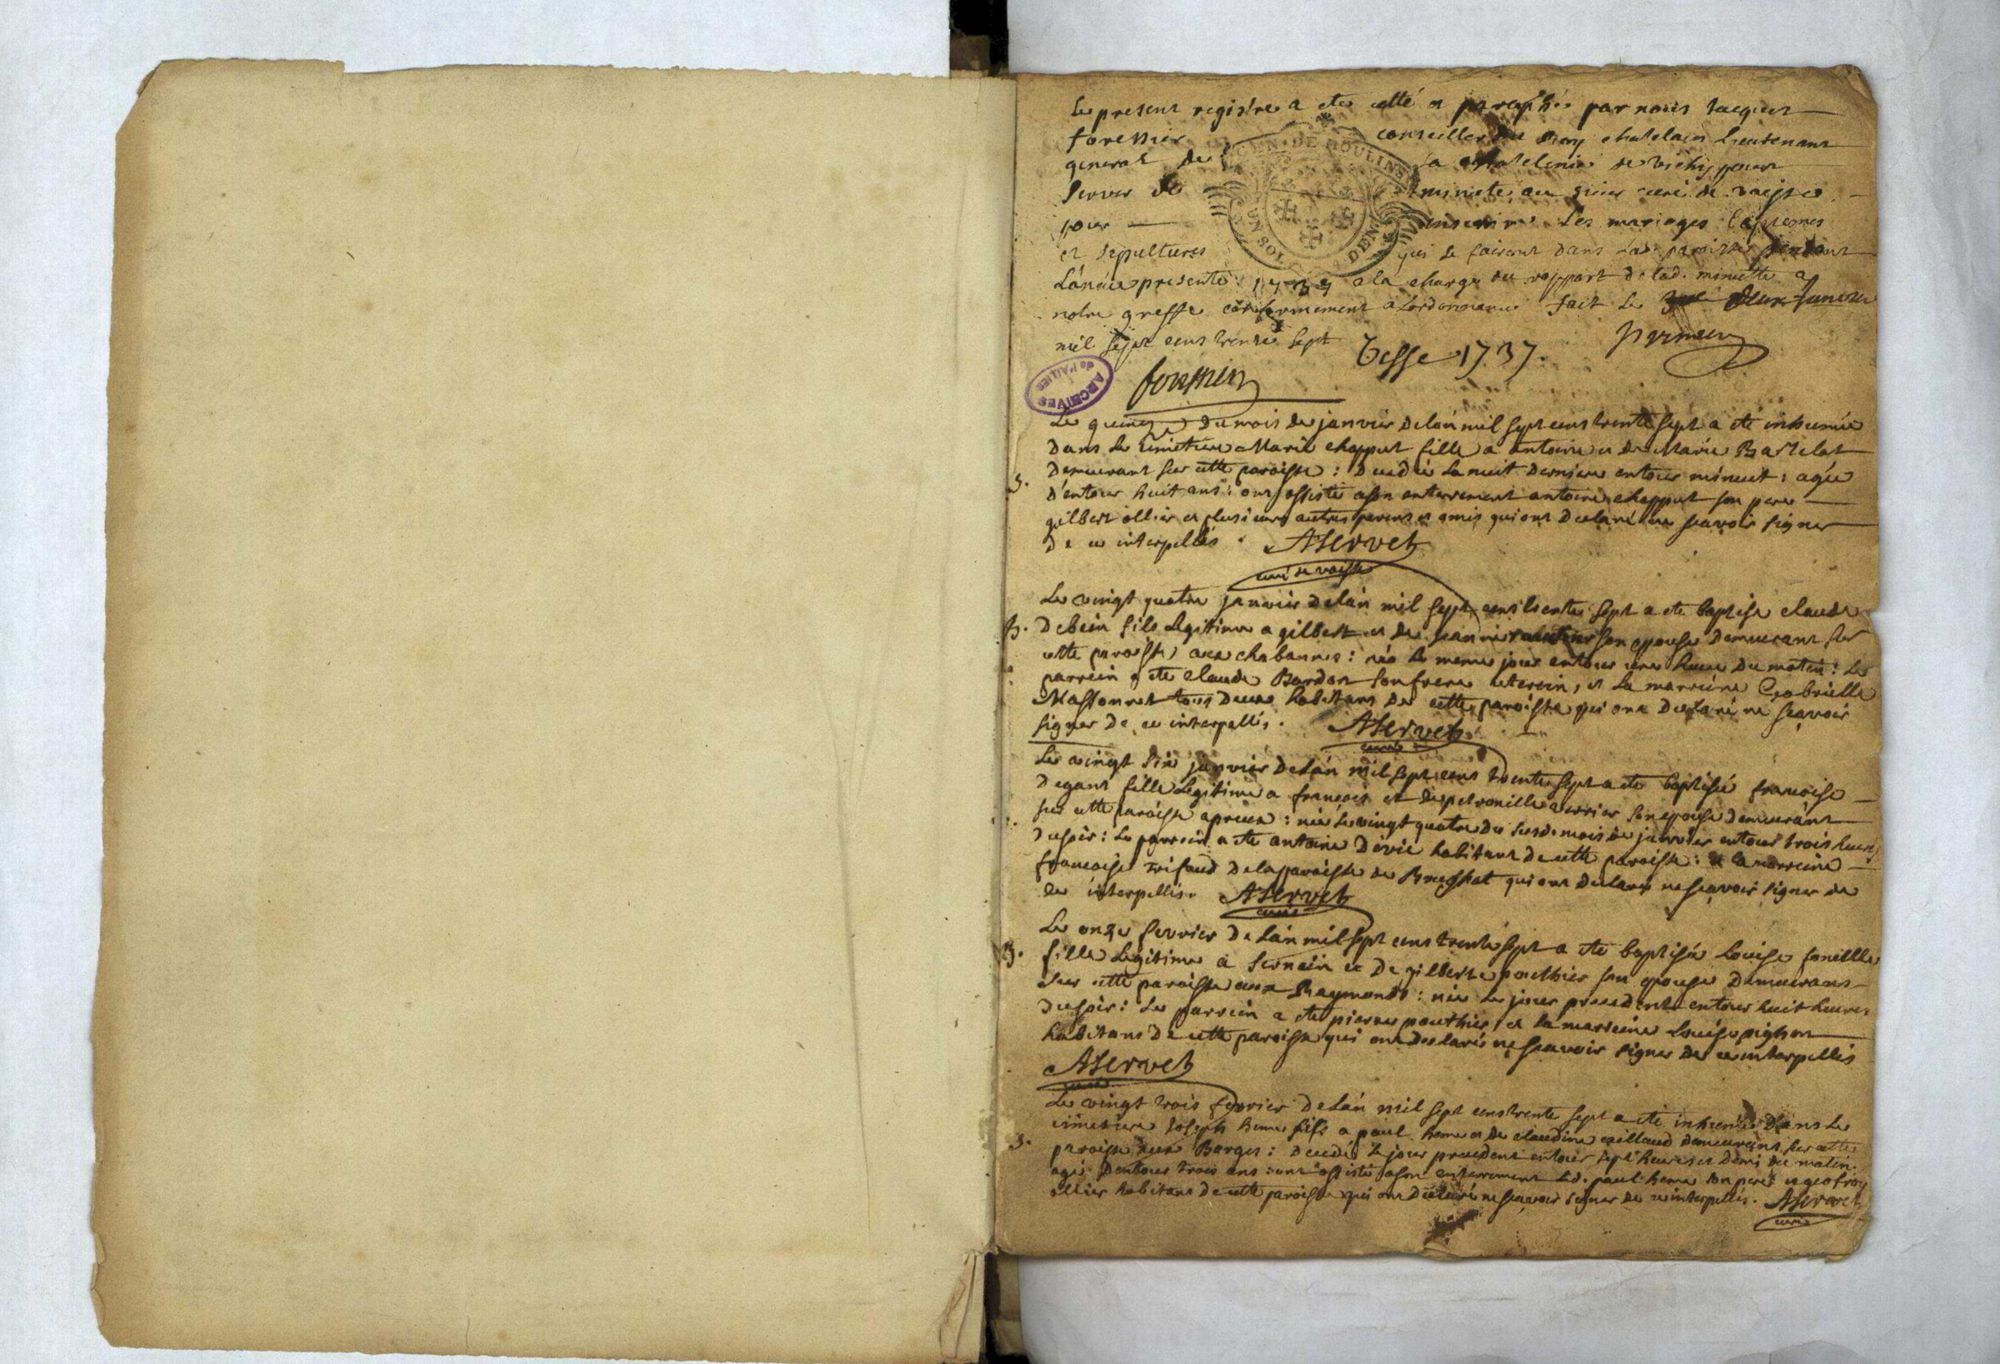 Le present registre a ete cotté et paraphé par nous Jacques
forestier conseiller du Roy chatelain Lieutenant
general de la chatelenie de Vichy pour
servir de minute au sieur curé de vaisse
pour inserire Les mariages Baptemes
et sepultures qui se fairont dans lad. paroisse pendant
L'année presente 1737 a la charge du rapport de lad. minutte a
notre greffe conformement a L'ordonnance fait Le deux Janvier
mil sept cens trente sept
Vesse 1737.
GEN. DE MOULINS
UN SOL DEN.
ARCHIVES
DE L'ALLIER
Le quinze du mois de janvier de lán mil sept cens trente sept a ete inhumée
dans Le Cimetiere Marie chapput fille a antoine et de Marie
demeurant sur cette paroisse : decedée La nuit derniere entour minuit : agée
S. d'entour huit ans : ont assisté a son enterrement antoine chapput son pere
gilbert ollier et plusieurs autres parens et amis qui ont declaré ne scavoir signer
de ce interpellés . AServet
curé de vaisse
Le vingt quatre janvier de lán mil sept cens trente sept a ete baptisé claude
B. debein fils Legitime a gilbert et de jeanne son epouse demeurant sur
cette paroisse aux chabannes : née Le meme jour entour une heure du matin : Le
parrein a ete claude Bardon son frere uterein, et La marreine Gabrielle
Massonnet tous deux habitans de cette paroisse qui ont declaré ne scavoir
signer de ce interpellés . AServet
curé
Le vingt six janvier de lán mil sept cens trente sept a ete baptisée francoise
degant fille Legitime a francois et de petronille verrier son epouse demeuránt
sur cette paroisse : née Le vingt quatre du susd. mois de janvier entour trois heures
du soir : Le parrein a ete antoine devic habitant de cette paroisse : et La marreine
francoise de la paroisse de qui ont declaré ne scavoir signer de
ce interpellés . AServet
curé
Le onze fevrier de Lán mil sept cens trente sept a ete baptisée Louise
B. fille Legitime a et de gilberte pouthier son epouse demeurans
sur cette paroisse aux Raymonds : née Le jour precedent entour huit heures
du soir : Le parrein a ete pierre pouthier, et La marreine Louise pighon
habitans de cette paroisse qui ont declarés ne scavoir signer de ce interpellés
AServet
curé
Le vingt trois fevrier de Lán mil sept cens trente sept a eté inhumé dans Le
cimetiere Joseph heme fils a paul heme et de claudine caillaud demeurant sur cette
S. paroisse aux Barges : decedé Le jour precedent entour sept heures et demi du matin
agé d'entour trois ans : ont assisté a son enterrement led. paul heme son pere et geofroy
ollier habitans de cette paroisse qui ont declaré ne scavoir signer de ce interpellés . AServet
curé